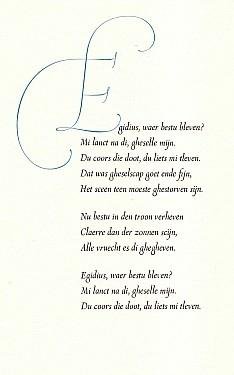 Egidius, waer bestu bleven?
Mi lanct na di, gheselle mijn.
Du coors die doot, du liets mi tleven.
Dat was gheselscap goet ende fijn,
Het sceen teen moeste ghestorven sijn.
Nu bestu in den troon verheven
Claerre dan der zonnen scijn,
Alle vruecht es di ghegheven.
Egidius, waer bestu bleven?
Mi lanct na di, gheselle mijn.
Du coors die doot, du liets mi tleven.